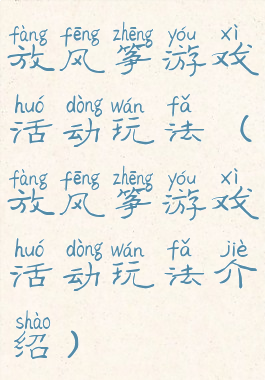 fàng fēng zhēng yóu xì
放风筝游戏
huó dòng wán fǎ
活动玩法（
fàng fēng zhēng yóu xì
放风筝游戏
huó dòng wán fǎ jiè
活动玩法介
shào
绍）